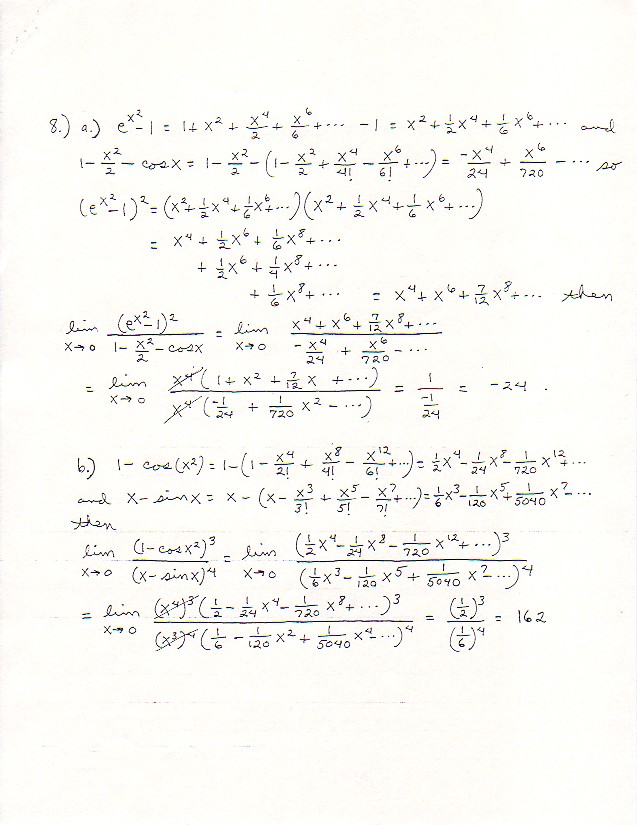 8.) a.) e^{x^2} - 1 = 1 + x^2 + \frac{x^4}{2} + \frac{x^6}{6} + ⋯ - 1 = x^2 + \frac{1}{2}x^4 + \frac{1}{6}x^6 + ⋯ and
1 - \frac{x^2}{2} - cos x = 1 - \frac{x^2}{2} - (1 - \frac{x^2}{2} + \frac{x^4}{4!} - \frac{x^6}{6!} + ⋯) = \frac{-x^4}{24} + \frac{x^6}{720} - ⋯ so
(e^{x^2} - 1)^2 = (x^2 + \frac{1}{2}x^4 + \frac{1}{6}x^6 + ⋯)(x^2 + \frac{1}{2}x^4 + \frac{1}{6}x^6 + ⋯)
= x^4 + \frac{1}{2}x^6 + \frac{1}{6}x^8 + ⋯
+ \frac{1}{2}x^6 + \frac{1}{4}x^8 + ⋯
+ \frac{1}{6}x^8 + ⋯ = x^4 + x^6 + \frac{7}{12}x^8 + ⋯ then
lim_{x→0} \frac{(e^{x^2} - 1)^2}{1 - \frac{x^2}{2} - cos x} = lim_{x→0} \frac{x^4 + x^6 + \frac{7}{12}x^8 + ⋯}{-\frac{x^4}{24} + \frac{x^6}{720} - ⋯}
= lim_{x→0} \frac{x^4(1 + x^2 + \frac{7}{12}x + ⋯)}{x^4(\frac{-1}{24} + \frac{1}{720}x^2 - ⋯)} = \frac{1}{\frac{-1}{24}} = -24 .
b.) 1 - cos(x^2) = 1 - (1 - \frac{x^4}{2!} + \frac{x^8}{4!} - \frac{x^{12}}{6!} + ⋯) = \frac{1}{2}x^4 - \frac{1}{24}x^8 - \frac{1}{720}x^{12} + ⋯
and x - sin x = x - (x - \frac{x^3}{3!} + \frac{x^5}{5!} - \frac{x^7}{7!} + ⋯) = \frac{1}{6}x^3 - \frac{1}{120}x^5 + \frac{1}{5040}x^7 - ⋯
then
lim_{x→0} \frac{(1 - cos x^2)^3}{(x - sin x)^4} = lim_{x→0} \frac{(\frac{1}{2}x^4 - \frac{1}{24}x^8 - \frac{1}{720}x^{12} + ⋯)^3}{(\frac{1}{6}x^3 - \frac{1}{120}x^5 + \frac{1}{5040}x^7 - ⋯)^4}
= lim_{x→0} \frac{(x^4)^3(\frac{1}{2} - \frac{1}{24}x^4 - \frac{1}{720}x^8 + ⋯)^3}{(x^3)^4(\frac{1}{6} - \frac{1}{120}x^2 + \frac{1}{5040}x^4 - ⋯)^4} = \frac{(\frac{1}{2})^3}{(\frac{1}{6})^4} = 162